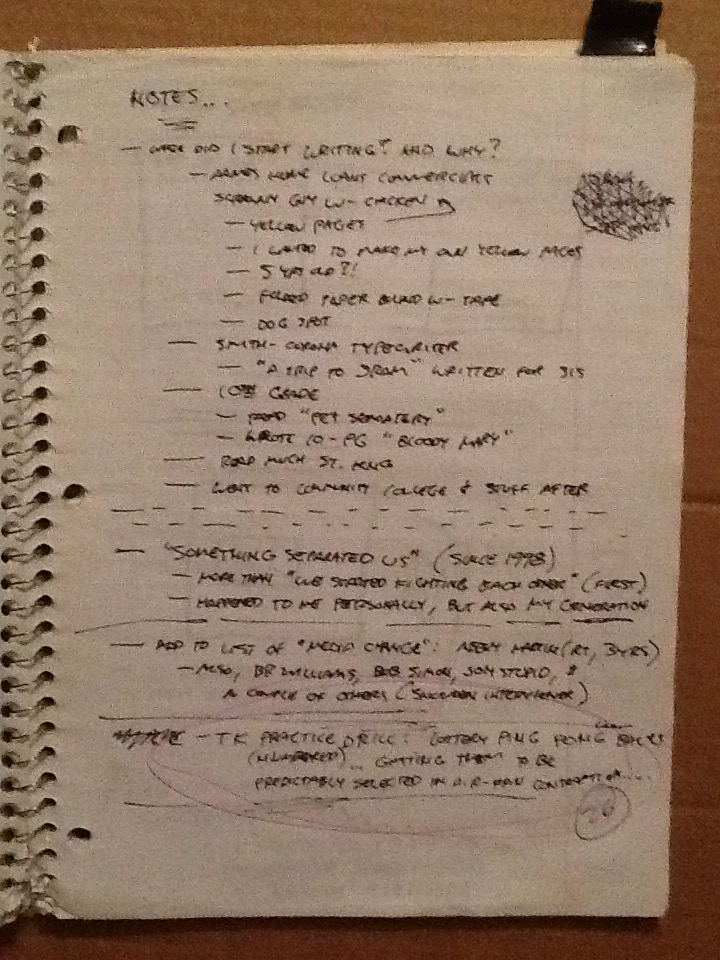 NOTES...
— DID I START WRITING? AND WHY?
— HOME LOANS COMMERCIALS
SCRAWNY GUY W- CHICKEN
— YELLOW PAGES
— I WANTED TO MAKE MY OWN YELLOW PAGES
— 5 YRS OLD?!
— FOLDED PAPER BOUND W- TAPE
— DOG SPOT
— SMITH-CORONA TYPEWRITER
— "A TRIP TO " WRITTEN FOR SIS
— 10TH GRADE
— READ "PET SEMATERY"
— WROTE 10-PG "BLOODY MARY"
— READ MUCH ST. KING
— WENT TO COMMUNITY COLLEGE & STUFF AFTER
— "SOMETHING SEPARATED US" (SINCE 1998)
— MORE THAN "WE STARTED FIGHTING EACH OTHER" (FIRST)
— HAPPENED TO ME PERSONALLY, BUT ALSO MY GENERATION
— ADD TO LIST OF "MEDIA CHANGE": ABBY MARTIN (RT, 3YRS)
— ALSO, BR WILLIAMS, BOB SIMON, JON , &
A COUPLE OF OTHERS (SNOWDEN INTERVIEWER)
— TK PRACTICE DRILL: LOTTERY PING PONG BALLS
(NUMBERED)... GETTING THEM TO BE
PREDICTABLY SELECTED IN AIR-FAN CONTRAPTION.....